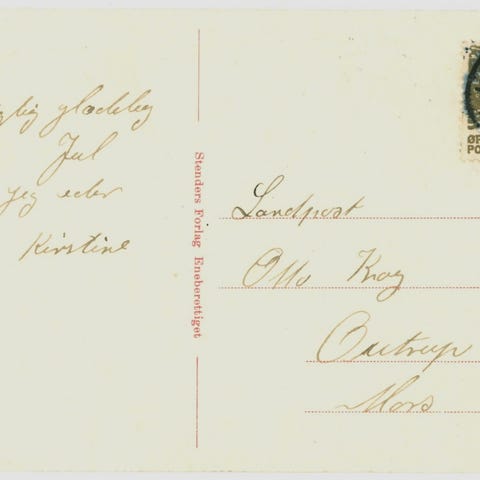 glædelig
Jul
jeg eder
Kirstine
Stenders Forlag Eneberettiget
Landpost
Otto Krog
Outrup
Mors
ØR
PO